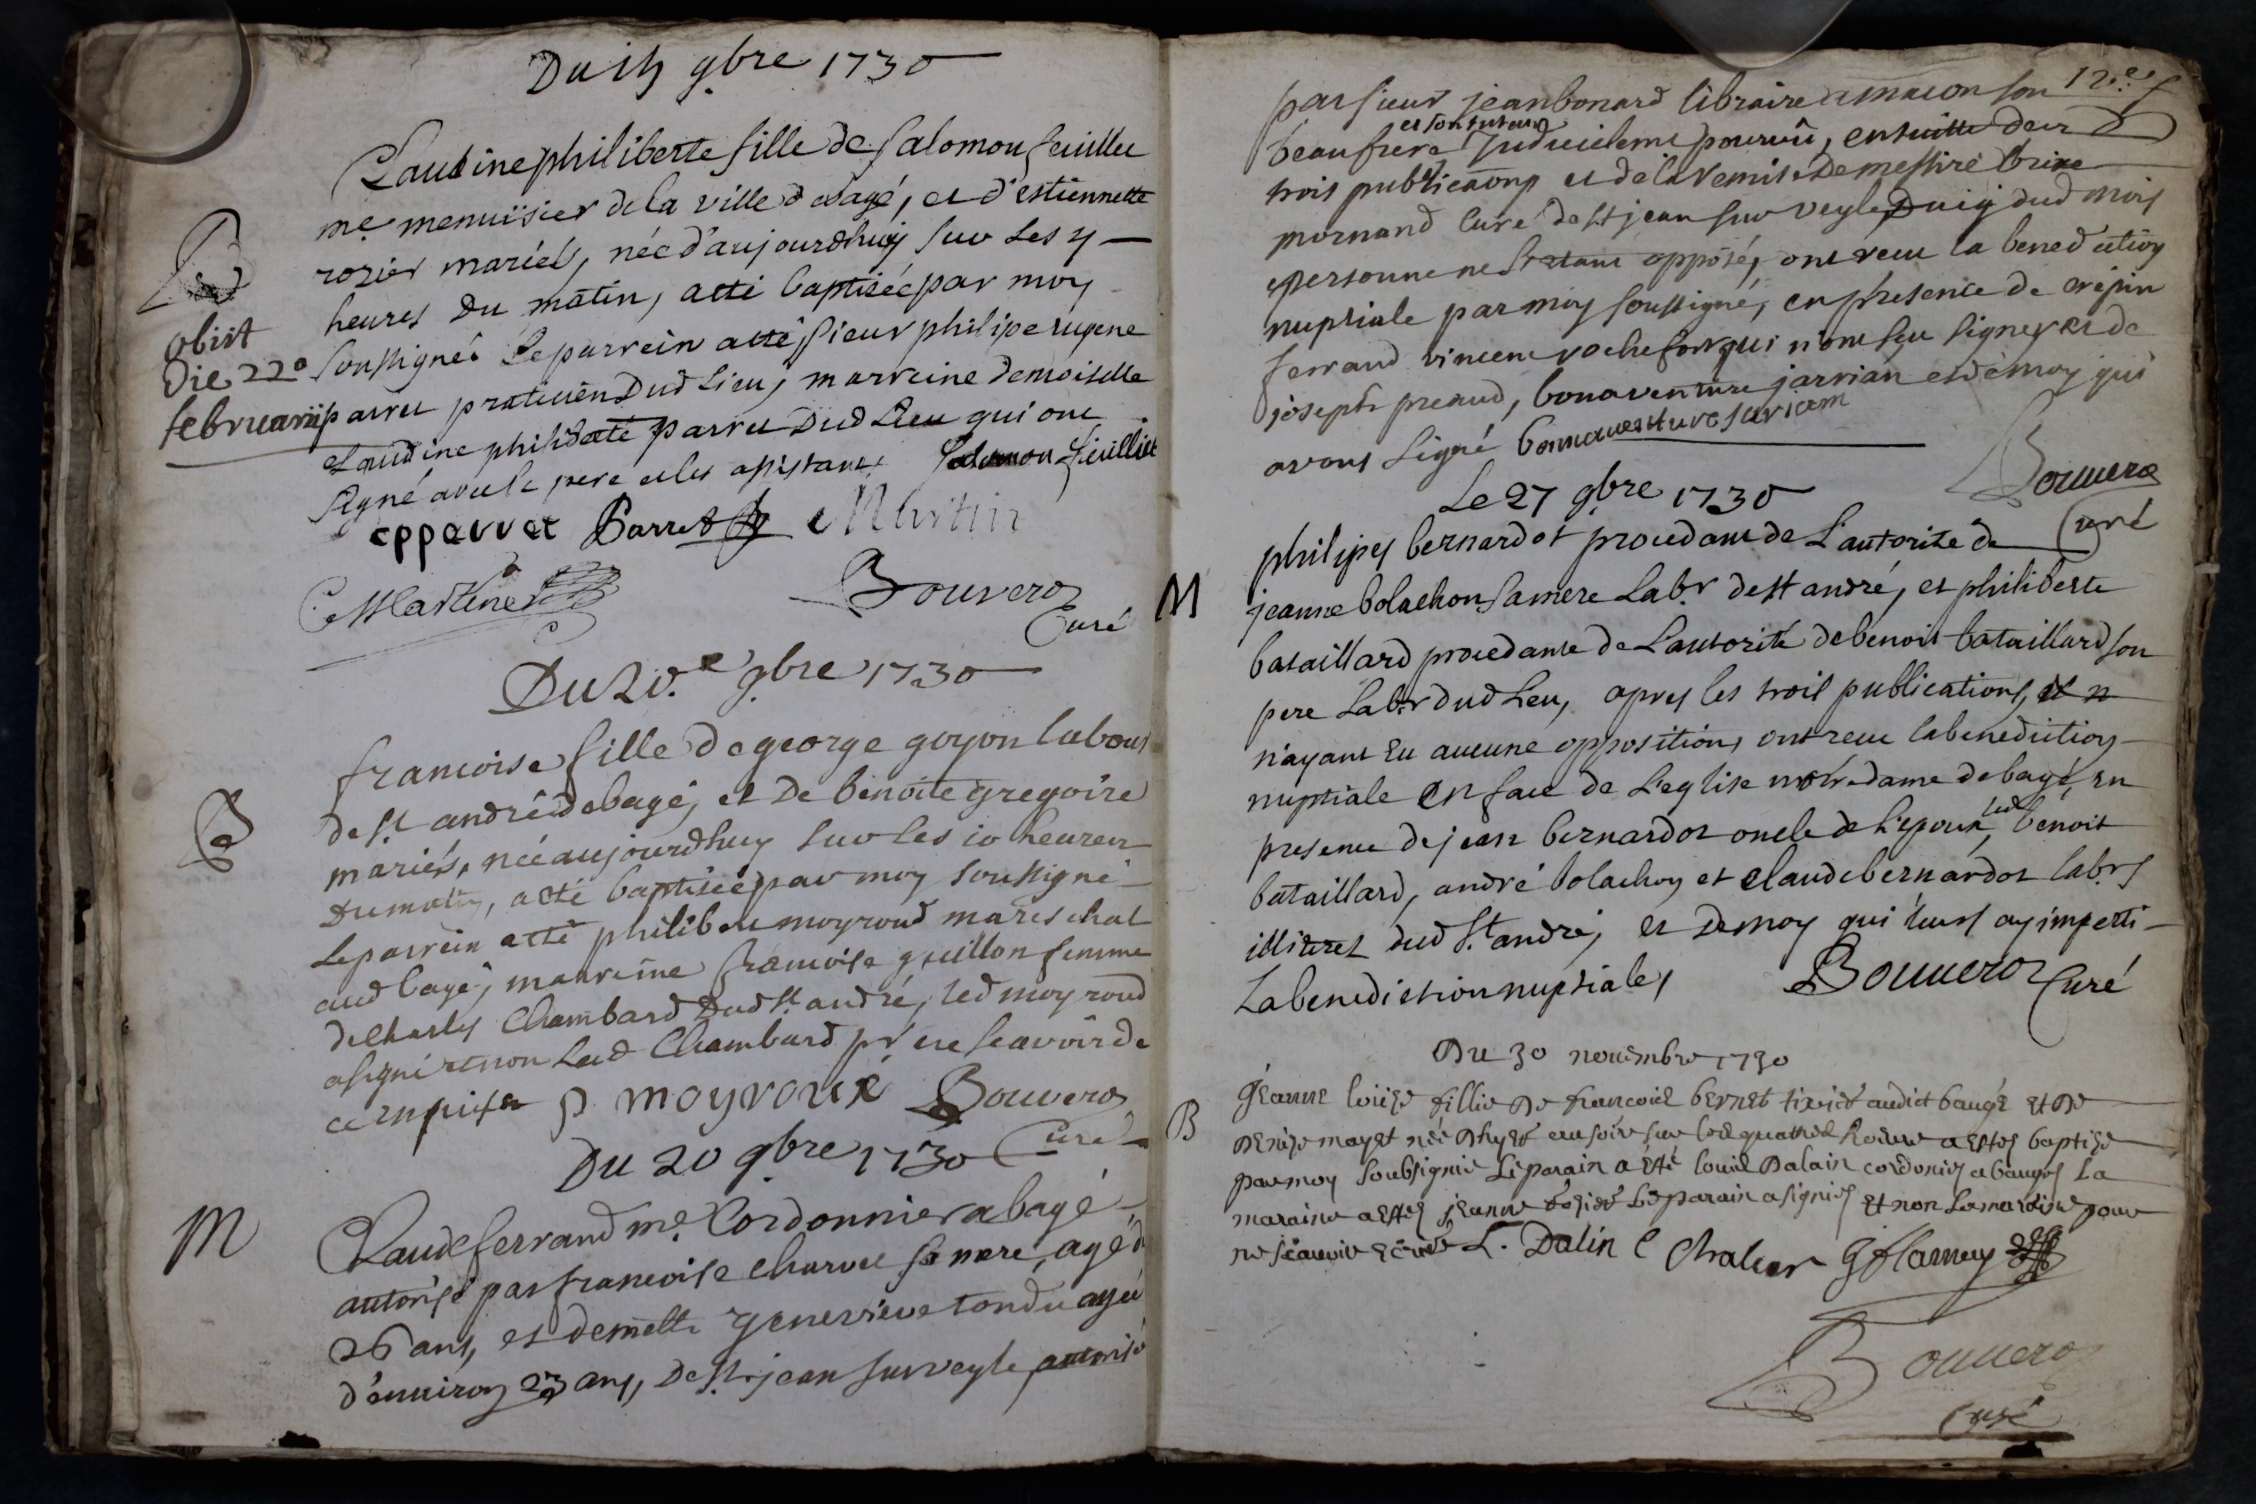 Du 15 9bre 1730
Claudine philiberte fille de Salomon feuillet
me menuisier de la ville de bagé, et d'estiennette
rozier mariés, née d'aujourdhuy sur les 4
heures du matin, a été baptisée par moy
soussigné le parrein a été sieur philipe eugene
parret praticien dud lieu, marreine demoiselle
Claudine philiberte parret dud lieu qui ont
signé avec le pere et les assistants Salomon feuilliet
B
obiit
die 22o
februarii
cpparret Parret Martin
C Martine
Bouveroz
Curé
Du 20.e 9bre 1730
B
francoise fille de george goyon labour
de st andré de bagé, et de benoite gregoire
mariés, née aujourdhuy sur les 10 heures
du matin, a été baptisée par moy soussigné
le parrein a été philibert moyroud mareschal
aud bagé, marreine francoise guillon femme
de Charles Chambard dud st andré, led moyroud
a signé et non lad Chambard pr ne scavoir de
ce enquise P moyroud Bouveroz
Curé
Du 20 9bre 1730
M
Claude ferrand me. Cordonnier a bagé
autorisé par francoise Charvet sa mere, agé d
26 ans, et demelle genevieve tondu agée
d'environ 23 ans, de st jean sur veyle autorisé
12.e
par sieur jean bonard libraire a macon son
beaufrere et son tuteur judicielemt pourvû, ensuitte deux
trois publications et de la remise de messire brixe
mornand curé de st jean sur veyle du 19 dud mois
personne ne s'etant opposé, ont receu la benediction
nuptiale par moy soussigné, en presence de crépin
ferrand vincent rochefort qui n'ont sceu signer et de
joseph preaud, bonaventure jarrian et de moy qui
avons signé bonnaventure jariam
Bouveroz
Curé
Le 27 9bre 1730
M
philipes bernardot procedant de L'autorité de
jeanne bolachon sa mere Labr de st andré, et philiberte
bataillard procedante de L'autorité de benoit bataillard son
pere Labr dud Lieu, apres les trois publications, et n
n'ayant eu aucune opposition, ont receu la benediction
nuptiale en face de L'eglise notre dame de bagé, en
presence de jean bernardot oncle de l'epoux, led benoit
bataillard, andré bolachon et claude bernardot labrs
illiteres dud st andré, et de moy qui leurs ay imperti
La benediction nuptiale, Bouveroz Curé
Du 30 novembre 1730
B
jeanne loüise fillie de francois bernet tixier audict baugé et de
denise mayet née dhyer au soir sur les quattre heure a estes baptisé
par moy soubsignié le parain a esté louis dalain cordonier a baugés la
maraine a estes jeanne rosier le parain a signiés et non la maraine pour
ne scavoir ecrire L. Dalin C Chaler G flamey
Bouveroz
Curé